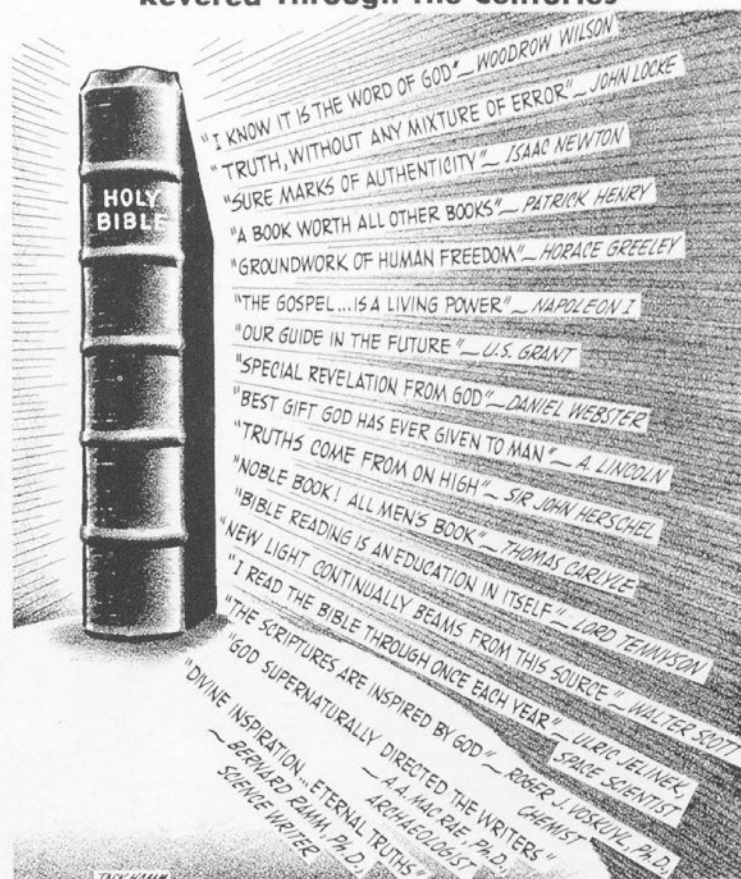 Revered Through The Centuries
HOLY
BIBLE
"I KNOW IT IS THE WORD OF GOD" — WOODROW WILSON
"TRUTH, WITHOUT ANY MIXTURE OF ERROR" — JOHN LOCKE
"SURE MARKS OF AUTHENTICITY" — ISAAC NEWTON
"A BOOK WORTH ALL OTHER BOOKS" — PATRICK HENRY
"GROUNDWORK OF HUMAN FREEDOM" — HORACE GREELEY
"THE GOSPEL...IS A LIVING POWER" — NAPOLEON I
"OUR GUIDE IN THE FUTURE" — U.S. GRANT
"SPECIAL REVELATION FROM GOD" — DANIEL WEBSTER
"BEST GIFT GOD HAS EVER GIVEN TO MAN" — A. LINCOLN
"TRUTHS COME FROM ON HIGH" — SIR JOHN HERSCHEL
"NOBLE BOOK! ALL MEN'S BOOK" — THOMAS CARLYLE
"BIBLE READING IS AN EDUCATION IN ITSELF" — LORD TENNYSON
"NEW LIGHT CONTINUALLY BEAMS FROM THIS SOURCE" — WALTER SCOTT
"I READ THE BIBLE THROUGH ONCE EACH YEAR" — ULRIC JELINEK,
SPACE SCIENTIST
"THE SCRIPTURES ARE INSPIRED BY GOD" — ROGER J. VOSKUYL, Ph.D.,
CHEMIST
"GOD SUPERNATURALLY DIRECTED THE WRITERS"
— A.A. MAC RAE, Ph.D.,
ARCHAEOLOGIST
"DIVINE INSPIRATION...ETERNAL TRUTHS"
— BERNARD RAMM, Ph.D.,
SCIENCE WRITER
JACK HAMM